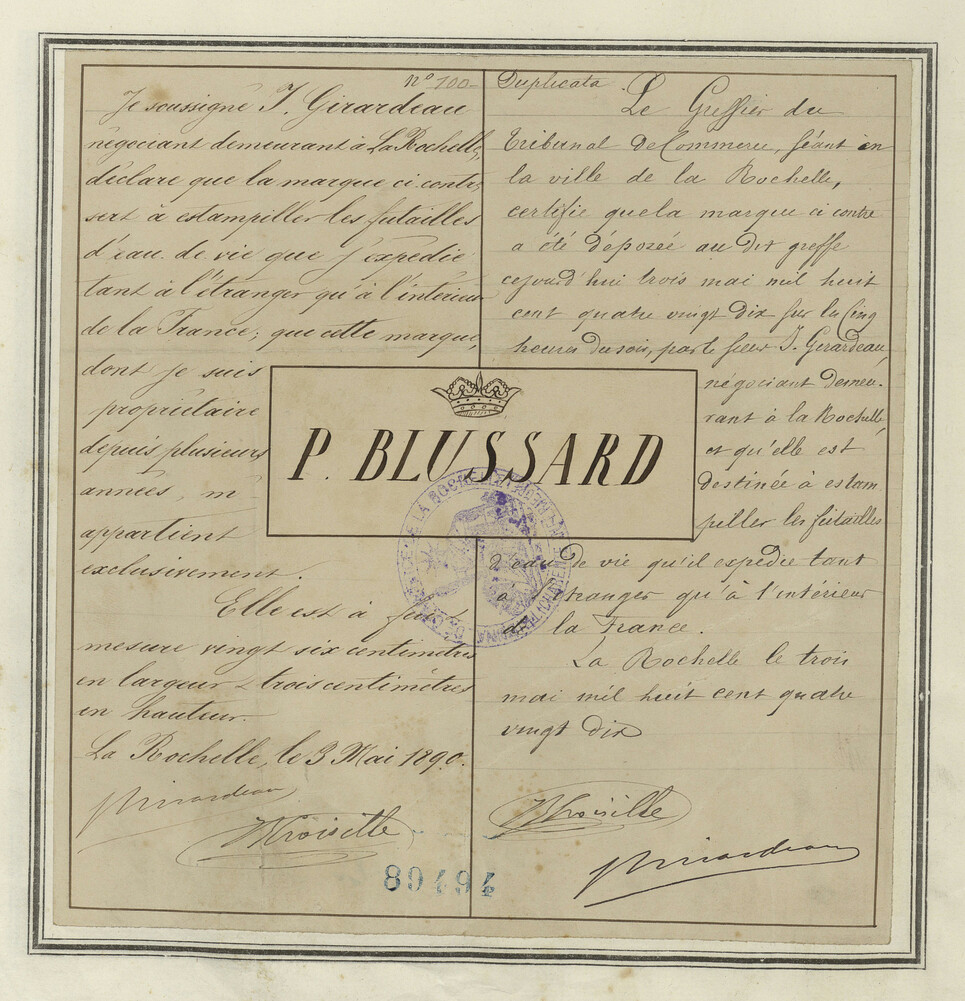 nº 100
Je soussigné J. Girardeau
négociant demeurant à La Rochelle,
déclare que la marque ci contre
sert à estampiller les futailles
d'eau de vie que j'expédie
tant à l'étranger qu'à l'intérieur
de la France; que cette marque,
dont je suis
propriétaire
depuis plusieurs
années, m'
appartient
exclusivement.
Elle est à feu &
mesure vingt six centimètres
en largeur & trois centimètres
en hauteur.
La Rochelle, le 3 Mai 1890.
J Girardeau
Croisille
Duplicata
Le Greffier du
Tribunal de Commerce, séant en
la ville de la Rochelle,
certifie que la marque ci contre
a été déposée au dit greffe
cejourd'hui trois mai mil huit
cent quatre vingt dix sur les cinq
heures du soir, par le sieur J. Girardeau,
négociant demeu-
rant à la Rochelle,
et qu'elle est
destinée à estam
piller les futailles
d'eau de vie qu'il expédie tant
à l'étranger qu'à l'intérieur
de la France.
La Rochelle le trois
mai mil huit cent quatre
vingt dix
Croisille
J Girardeau
P. BLUSSARD
89494